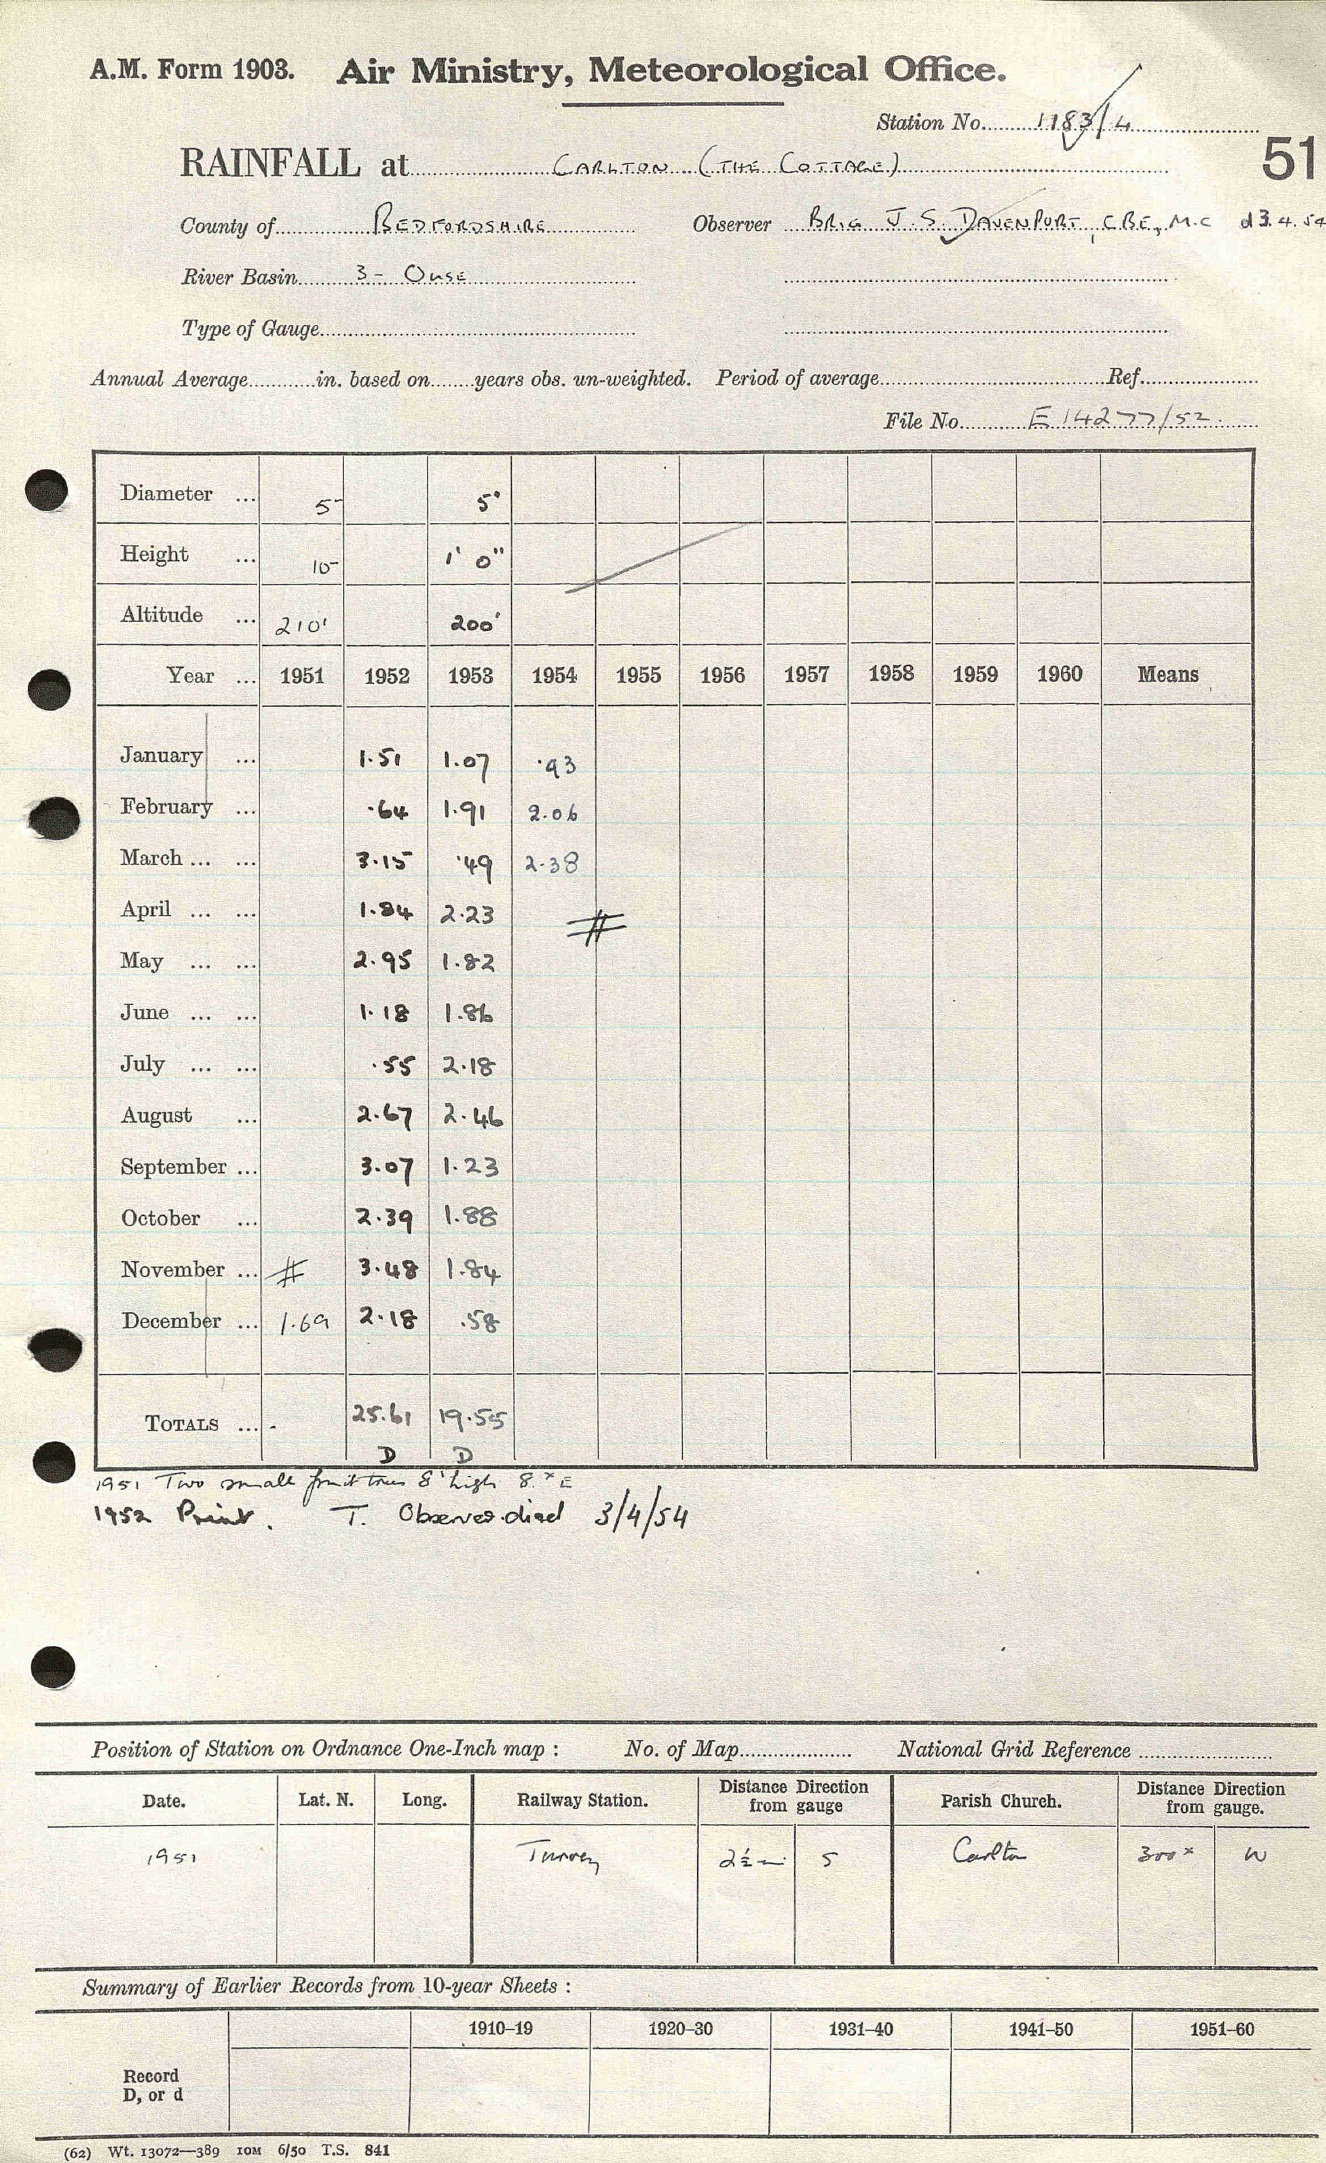 A.M. Form 1903. Air Ministry, Meteorological Office.
Station No. 1183/4
51
RAINFALL at CARLTON (THE COTTAGE)
County of BEDFORDSHIRE Observer BRIG J. S. DAVENPORT, CBE, M.C d 3.4.54
River Basin 3 - OUSE
Type of Gauge
Annual Average in. based on years obs. un-weighted. Period of average Ref.
File No. E 14277/52
Diameter ... 5" 5"
Height ... 10" 1' 0"
Altitude ... 210' 200'
Year ... 1951 1952 1953 1954 1955 1956 1957 1958 1959 1960 Means
January ... 1.51 1.07 .93
February ... .64 1.91 2.06
March ... ... 3.15 .49 2.38
April ... ... 1.84 2.23
May ... ... 2.95 1.82
June ... ... 1.18 1.86
July ... ... .55 2.18
August ... 2.67 2.46
September ... 3.07 1.23
October ... 2.39 1.88
November ... 3.48 1.84
December ... 1.69 2.18 .58
TOTALS ... - 25.61 19.55
D D
1951 Two small fruit trees 8' high 8 x E
1952 Print. T. Observer died 3/4/54
Position of Station on Ordnance One-Inch map : No. of Map National Grid Reference
Date. Lat. N. Long. Railway Station. Distance Direction from gauge Parish Church. Distance Direction from gauge.
1951 Turvey 2½ m S Carlton 300 x W
Summary of Earlier Records from 10-year Sheets :
1910–19 1920–30 1931–40 1941–50 1951–60
Record
D, or d
(62) Wt. 13072—389 10M 6/50 T.S. 841